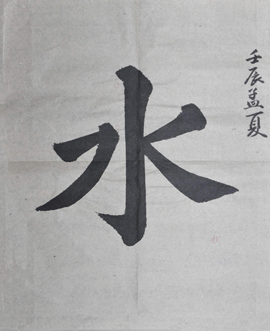 壬辰孟夏
水